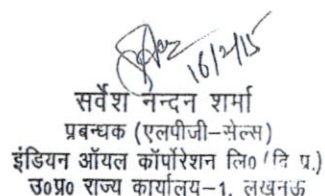 16/2/15
सर्वेश नन्दन शर्मा
प्रबन्धक (एलपीजी-सेल्स)
इंडियन ऑयल कॉर्पोरेशन लि० (वि. प्र.)
उ०प्र० राज्य कार्यालय-1, लखनऊ